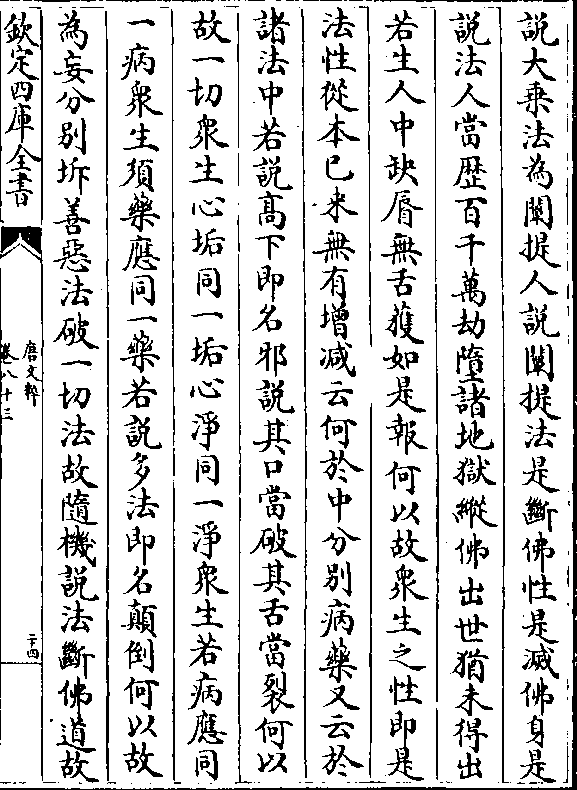 說大乗法為闡提人說闡提法是斷佛性是滅佛身是
說法人當歴百千萬劫墮諸地獄縱佛出世猶未得出
若生人中缺脣無舌獲如是報何以故衆生之性即是
法性從本已来無有增减云何於中分别病藥又云於
諸法中若說髙下即名邪說其口當破其舌當裂何以
故一切衆生心垢同一垢心淨同一淨衆生若病應同
一病衆生須藥應同一藥若說多法即名顛倒何以故
為妄分别坼善惡法破一切法故隨機說法斷佛道故
欽定四庫全書
唐文粹
卷八十三
二十四